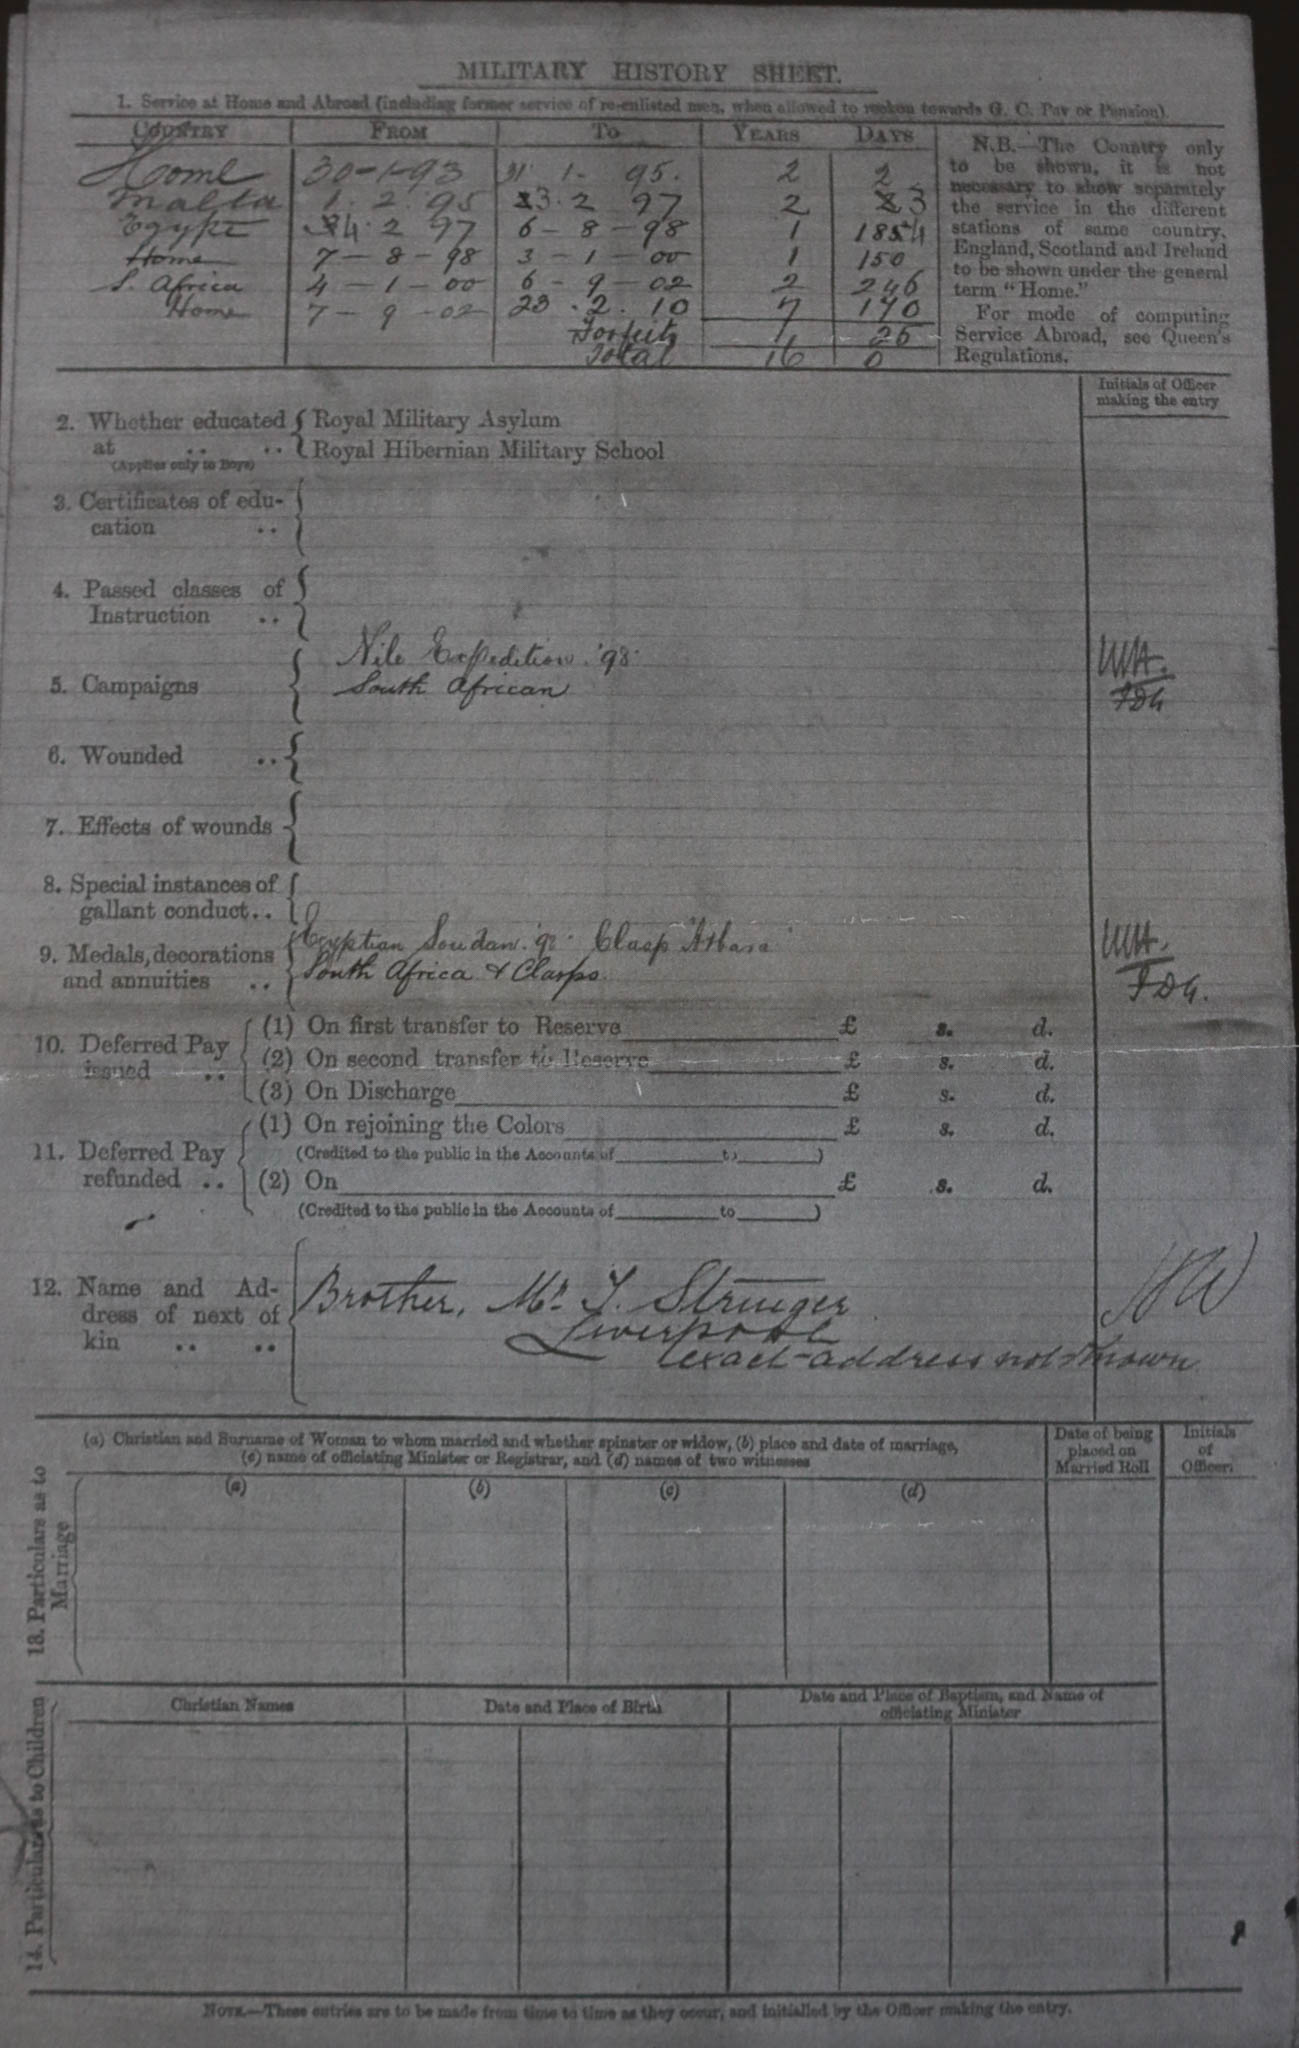 MILITARY HISTORY SHEET.
1. Service at Home and Abroad (including former service of re-enlisted men, when allowed to reckon towards G. C. Pay or Pension).
COUNTRY FROM TO YEARS DAYS
Home 30-1-93 31 1. 95. 2 2
Malta 1. 2 95 23. 2 97 2 23
Egypt 24. 2 97 6-8-98 1 164
Home 7-8-98 3-1-00 1 150
S. Africa 4-1-00 6-9-02 2 246
Home 7-9-02 23.2.10 7 170
Forfeits 1
Total 16 0
N.B.—The Country only
to be shown, it is not
necessary to show separately
the service in the different
stations of same country.
England, Scotland and Ireland
to be shown under the general
term "Home."
For mode of computing
Service Abroad, see Queen's
Regulations.
Initials of Officer
making the entry
2. Whether educated Royal Military Asylum
at .. .. Royal Hibernian Military School
(Applies only to Boys)
3. Certificates of edu-
cation ..
4. Passed classes of
Instruction ..
Nile Expedition '98
5. Campaigns South African
6. Wounded ..
7. Effects of wounds
8. Special instances of
gallant conduct..
9. Medals, decorations Egyptian Soudan Clasp "Atbara"
and annuities .. South Africa & Clasps.
10. Deferred Pay
issued ..
(1) On first transfer to Reserve £ s. d.
(2) On second transfer to Reserve £ s. d.
(3) On Discharge £ s. d.
11. Deferred Pay
refunded ..
(1) On rejoining the Colors £ s. d.
(Credited to the public in the Accounts of to )
(2) On £ s. d.
(Credited to the public in the Accounts of to )
12. Name and Ad-
dress of next of
kin .. ..
Brother, Mr. T. Stringer
Liverpool
exact address not known
(a) Christian and Surname of Woman to whom married and whether spinster or widow, (b) place and date of marriage,
(c) name of officiating Minister or Registrar, and (d) names of two witnesses
Date of being
placed on
Married Roll
Initials
of
Officer.
13. Particulars as to
Marriage
(a) (b) (c) (d)
14. Particulars as to Children
Christian Names
Date and Place of Birth
Date and Place of Baptism, and Name of
officiating Minister
NOTE.—These entries are to be made from time to time as they occur, and initialled by the Officer making the entry.